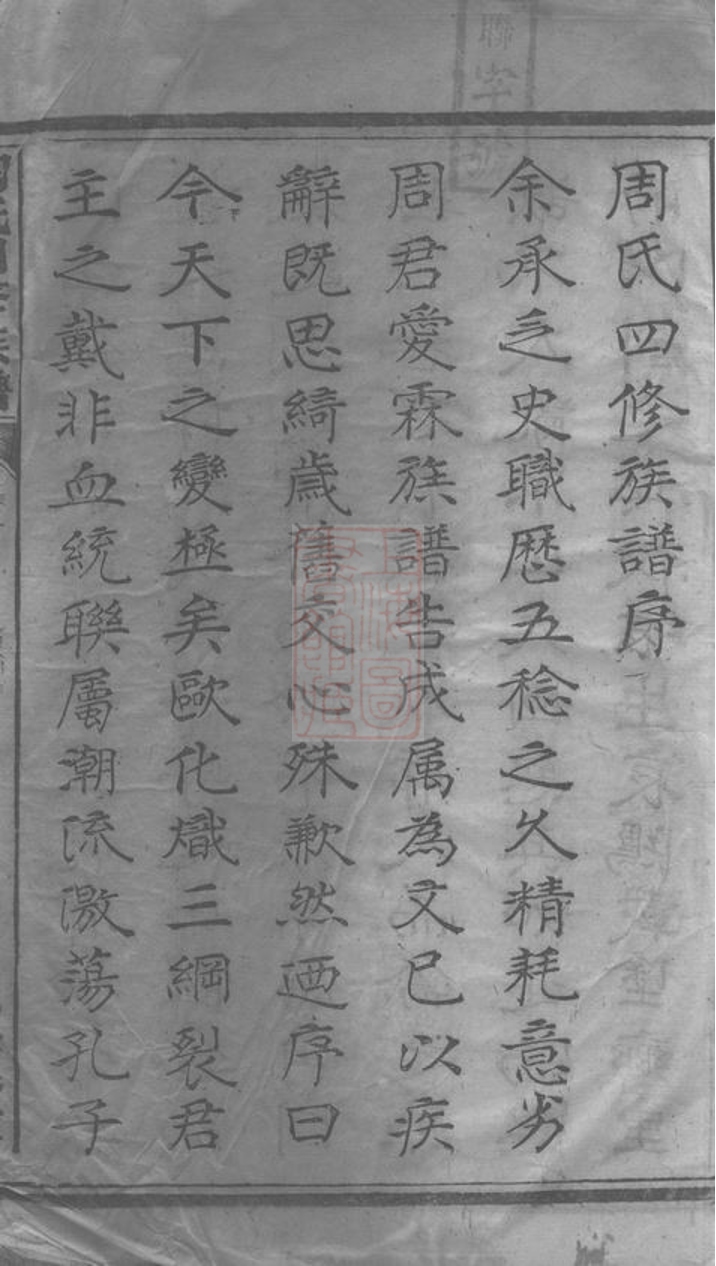 周氏四修族譜序
余承乏史職歴五稔之久精耗意劣
周君愛霖族譜告成属為文已以疾
辭既思綺歲舊交心殊歉然迺序曰
今天下之變極矣歐化熾三綱裂君
主之戴非血統聯屬潮流激蕩孔子